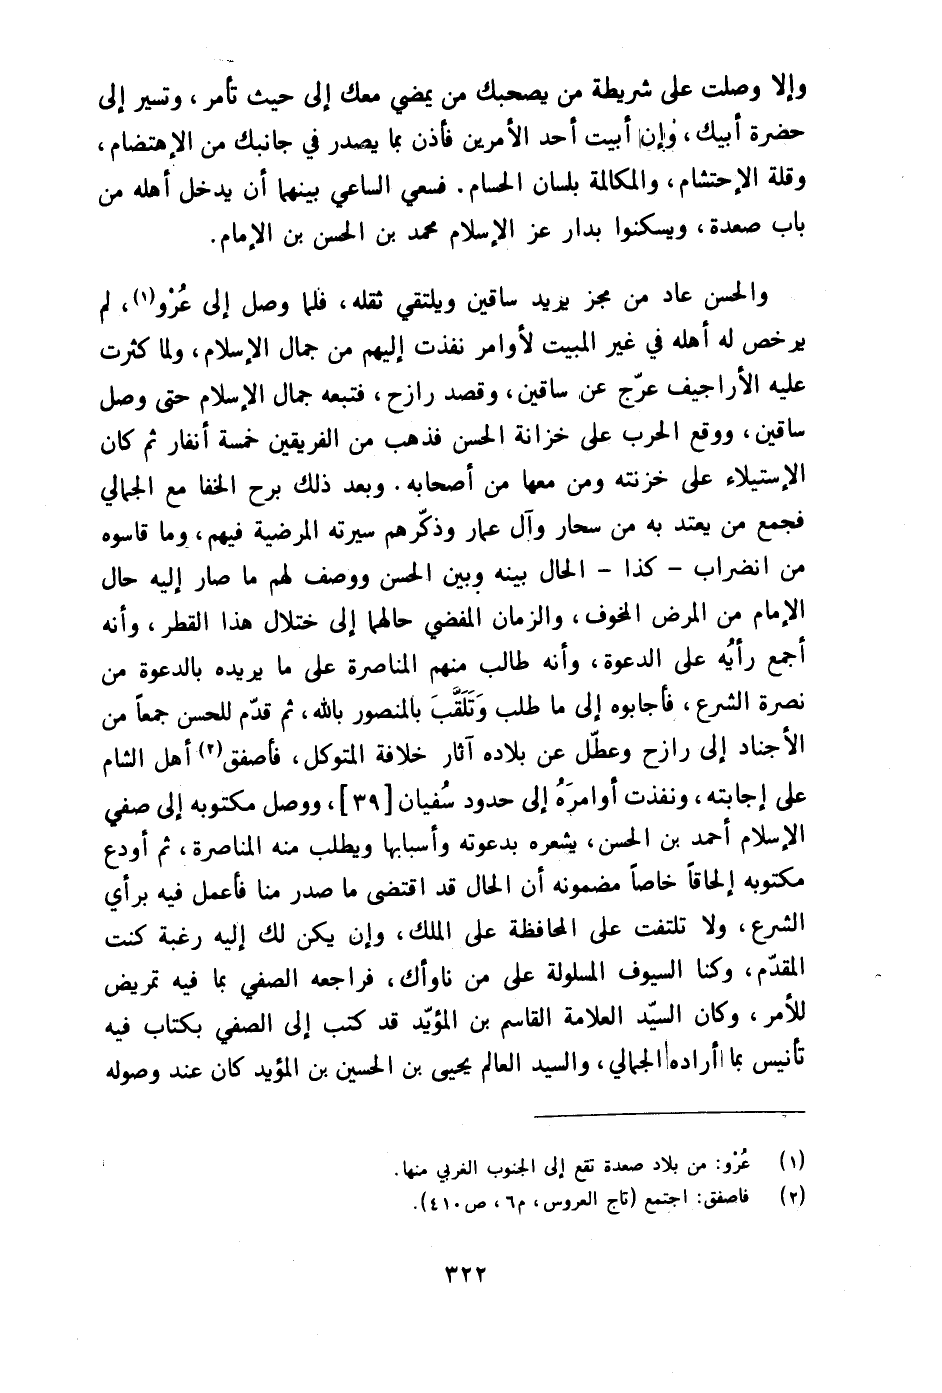 وإلا وصلت على شريطة من يصحبك من يمضي معك إلى حيث تأمر، وتسير إلى
حضرة أبيك، وإن أبيت أحد الأمرين فأذن بما يصدر في جانبك من الإهتضام،
وقلة الإحتشام، والمكالمة بلسان الحسام. فسعي الساعي بينهما أن يدخل أهله من
باب صعدة، ويسكنوا بدار عز الإسلام محمد بن الحسن بن الإمام.
والحسن عاد من مجز يريد ساقين ويلتقي ثقله، فلما وصل إلى عُرْو(١)، لم
يرخص له أهله في غير المبيت لأوامر نفذت إليهم من جمال الإسلام، ولما كثرت
عليه الأراجيف عرّج عن ساقين، وقصد رازح، فتبعه جمال الإسلام حتى وصل
ساقين، ووقع الحرب على خزانة الحسن فذهب من الفريقين خمسة أنفار ثم كان
الإستيلاء على خزنته ومن معها من أصحابه. وبعد ذلك برح الخفا مع الجمالي
فجمع من يعتد به من سحار وآل عمار وذكّرهم سيرته المرضية فيهم، وما قاسوه
من انضراب - كذا - الحال بينه وبين الحسن ووصف لهم ما صار إليه حال
الإمام من المرض المخوف، والزمان المفضي حالهما إلى ختلال هذا القطر، وأنه
أجمع رأيُه على الدعوة، وأنه طالب منهم المناصرة على ما يريده بالدعوة من
نصرة الشرع، فأجابوه إلى ما طلب وَتَلَقَّبَ بالمنصور بالله، ثم قدّم للحسن جمعاً من
الأجناد إلى رازح وعطّل عن بلاده آثار خلافة المتوكل، فأصفق(٢) أهل الشام
على إجابته، ونفذت أوامرَهُ إلى حدود سُفيان [٣٩]، ووصل مكتوبه إلى صفي
الإسلام أحمد بن الحسن، يشعره بدعوته وأسبابها ويطلب منه المناصرة، ثم أودع
مكتوبه إلحاقاً خاصاً مضمونه أن الحال قد اقتضى ما صدر منا فأعمل فيه برأي
الشرع، ولا تلتفت على المحافظة على الملك، وإن يكن لك إليه رغبة كنت
المقدّم، وكنا السيوف المسلولة على من ناوأك، فراجعه الصفي بما فيه تمريض
للأمر، وكان السيّد العلامة القاسم بن المؤيّد قد كتب إلى الصفي بكتاب فيه
تأنيس بما أراده الجمالي، والسيد العالم يحيى بن الحسين بن المؤيد كان عند وصوله
(١) عُرْو: من بلاد صعدة تقع إلى الجنوب الغربي منها.
(٢) فاصفق: اجتمع (تاج العروس، م٦، ص٤١٠).
٣٢٢